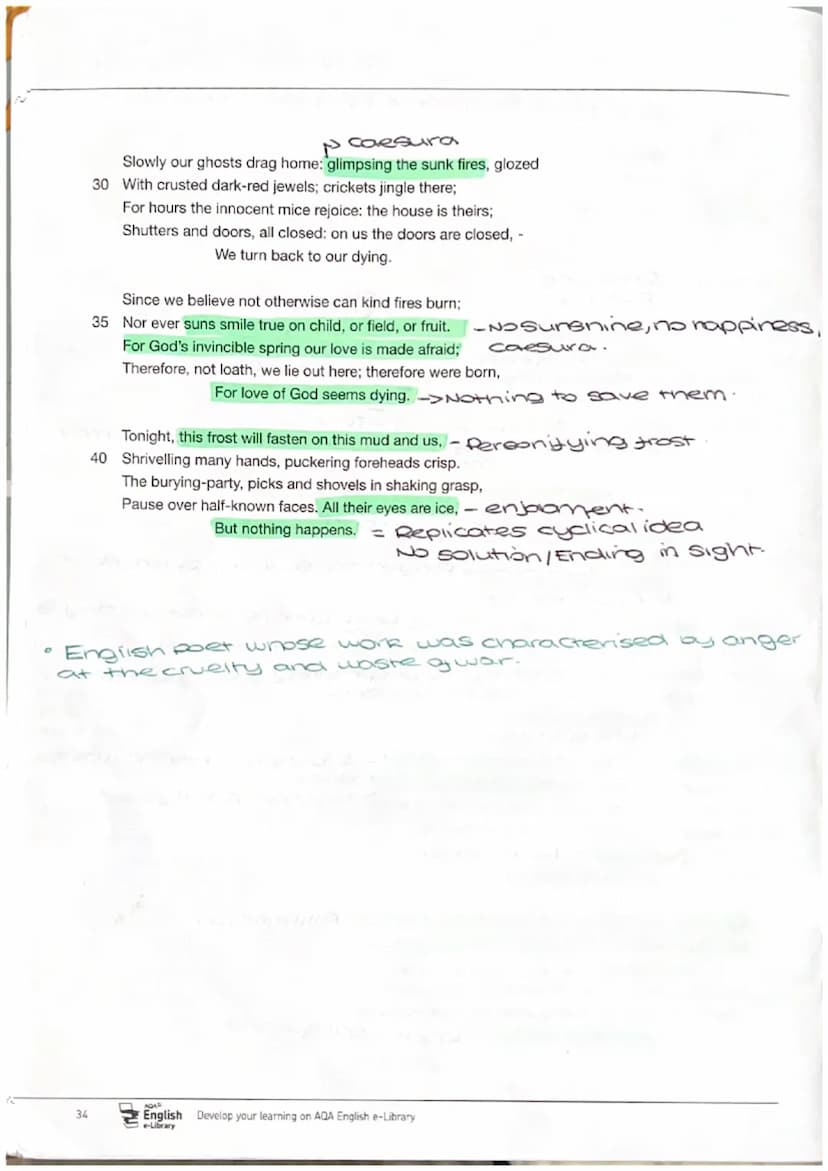 caesura
Slowly our ghosts drag home: glimpsing the sunk fires, glozed
30 With crusted dark-red jewels; crickets jingle there;
For hours the innocent mice rejoice: the house is theirs;
Shutters and doors, all closed: on us the doors are closed, -
We turn back to our dying.
Since we believe not otherwise can kind fires burn;
35 Nor ever suns smile true on child, or field, or fruit. - No sunshine, no happiness,
For God's invincible spring our love is made afraid; caesura.
Therefore, not loath, we lie out here; therefore were born,
For love of God seems dying. -> Nothing to save them.
Tonight, this frost will fasten on this mud and us, - Personifying frost
40 Shrivelling many hands, puckering foreheads crisp.
The burying-party, picks and shovels in shaking grasp,
Pause over half-known faces. All their eyes are ice, - enjboment.
But nothing happens. = Replicates cyclical idea
No solution/Ending in sight.
• English poet whose work was characterised by anger
at the cruelty and waste of war.
34 AQA English e-Library Develop your learning on AQA English e-Library